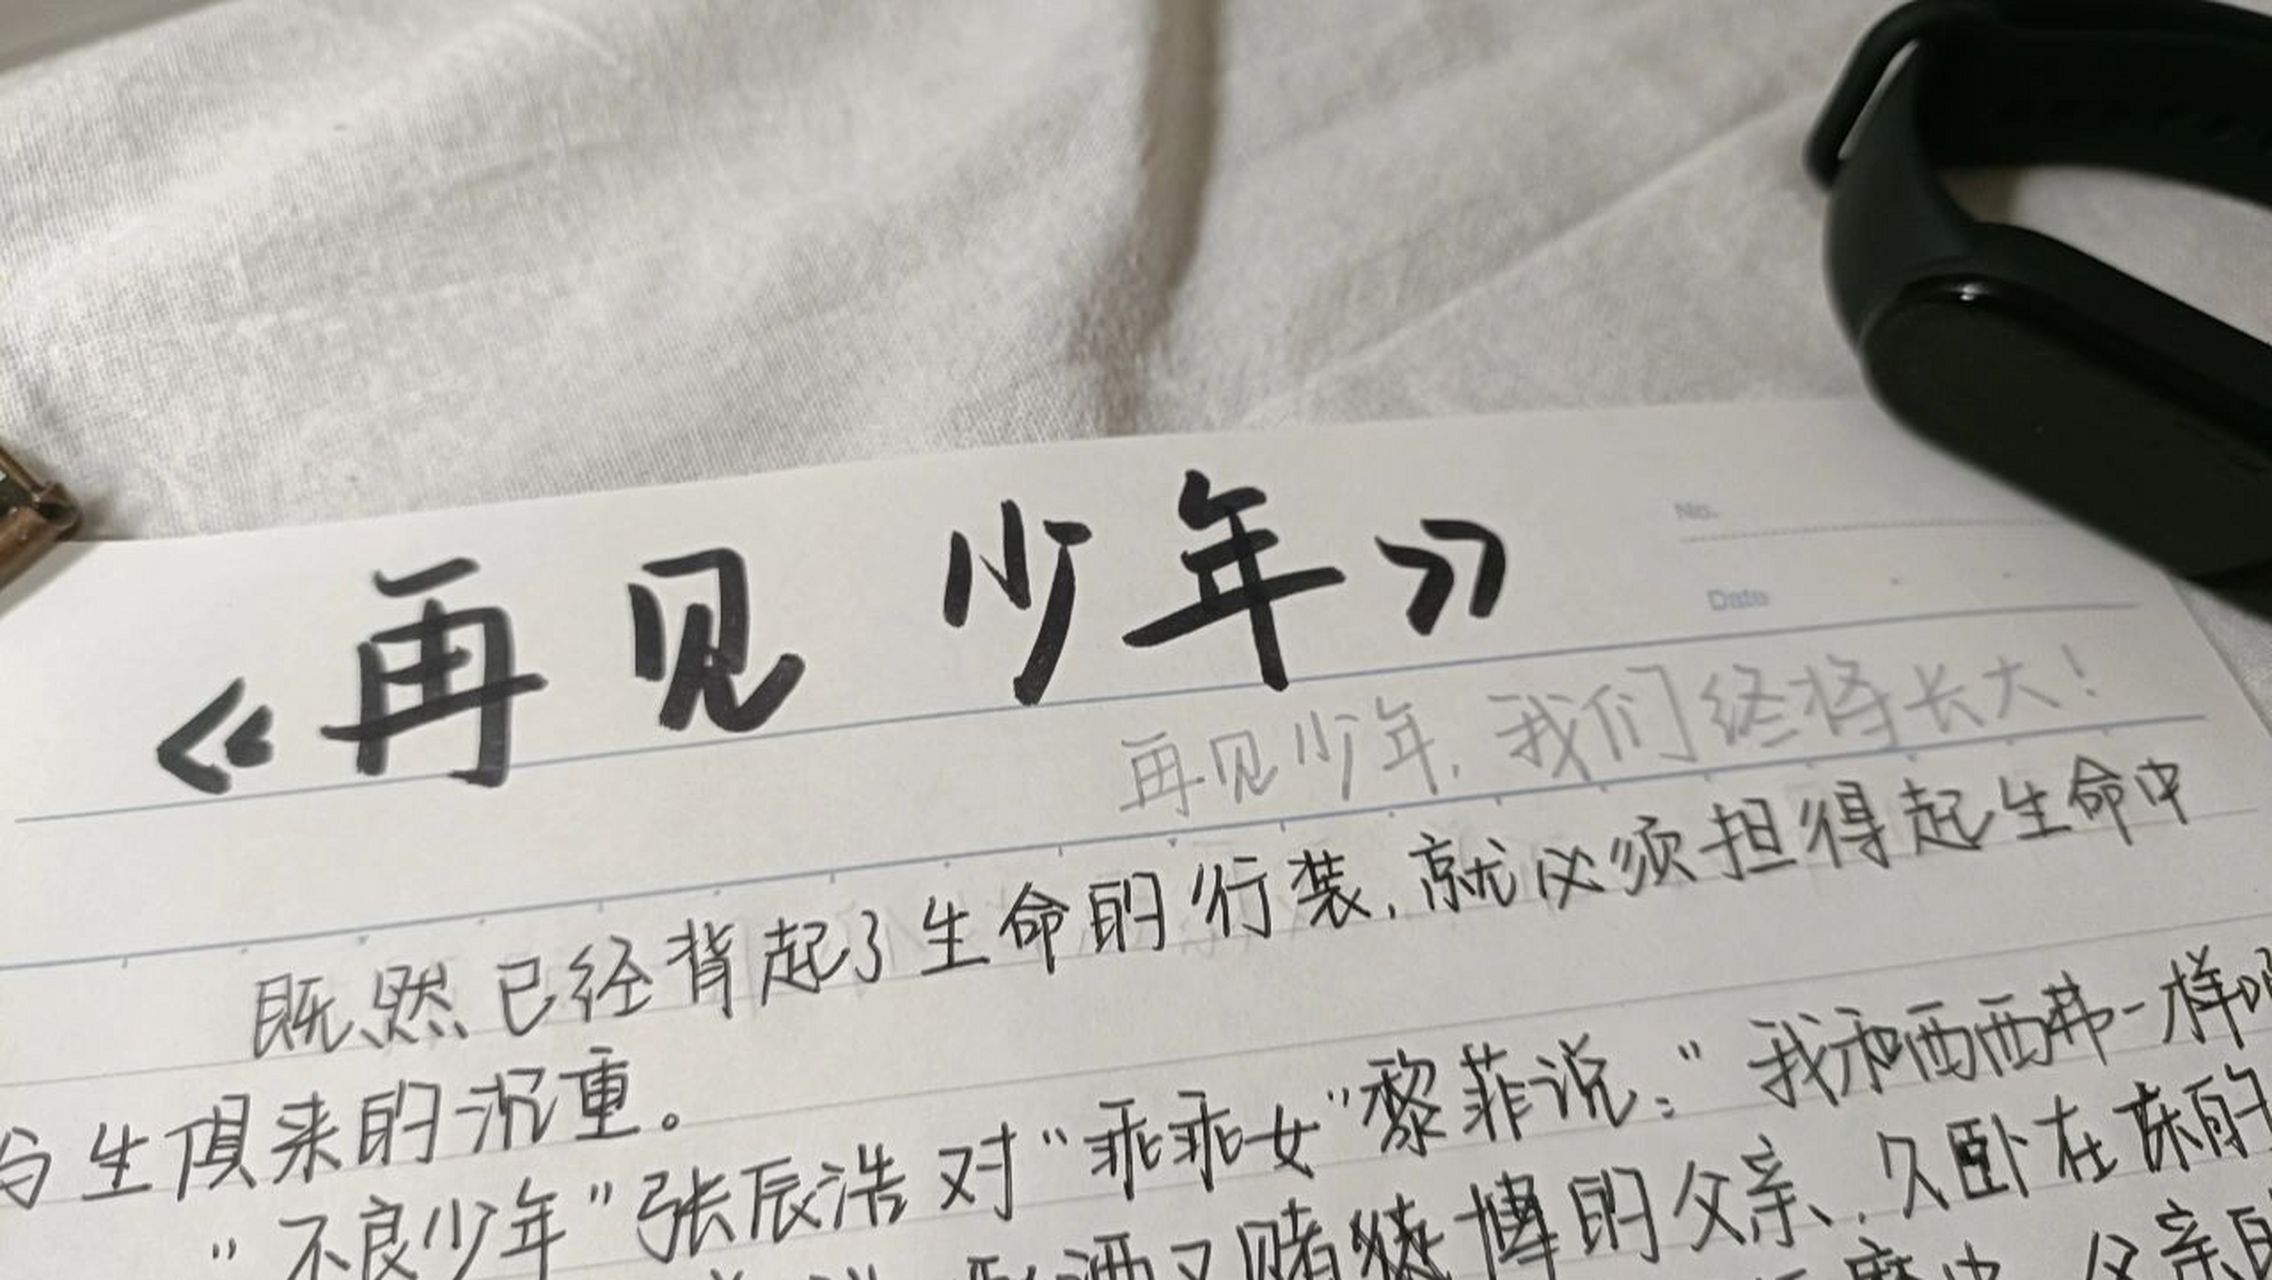 《再见 少年》
No.
Date
再见少年，我们终将长大！
既然已经背起了生命的行装，就必须担得起生命中
与生俱来的沉重。
"不良少年"张辰浩对"乖乖女"黎菲说："我和西西弗一样
酒又赌博的父亲、久卧在床的
父亲